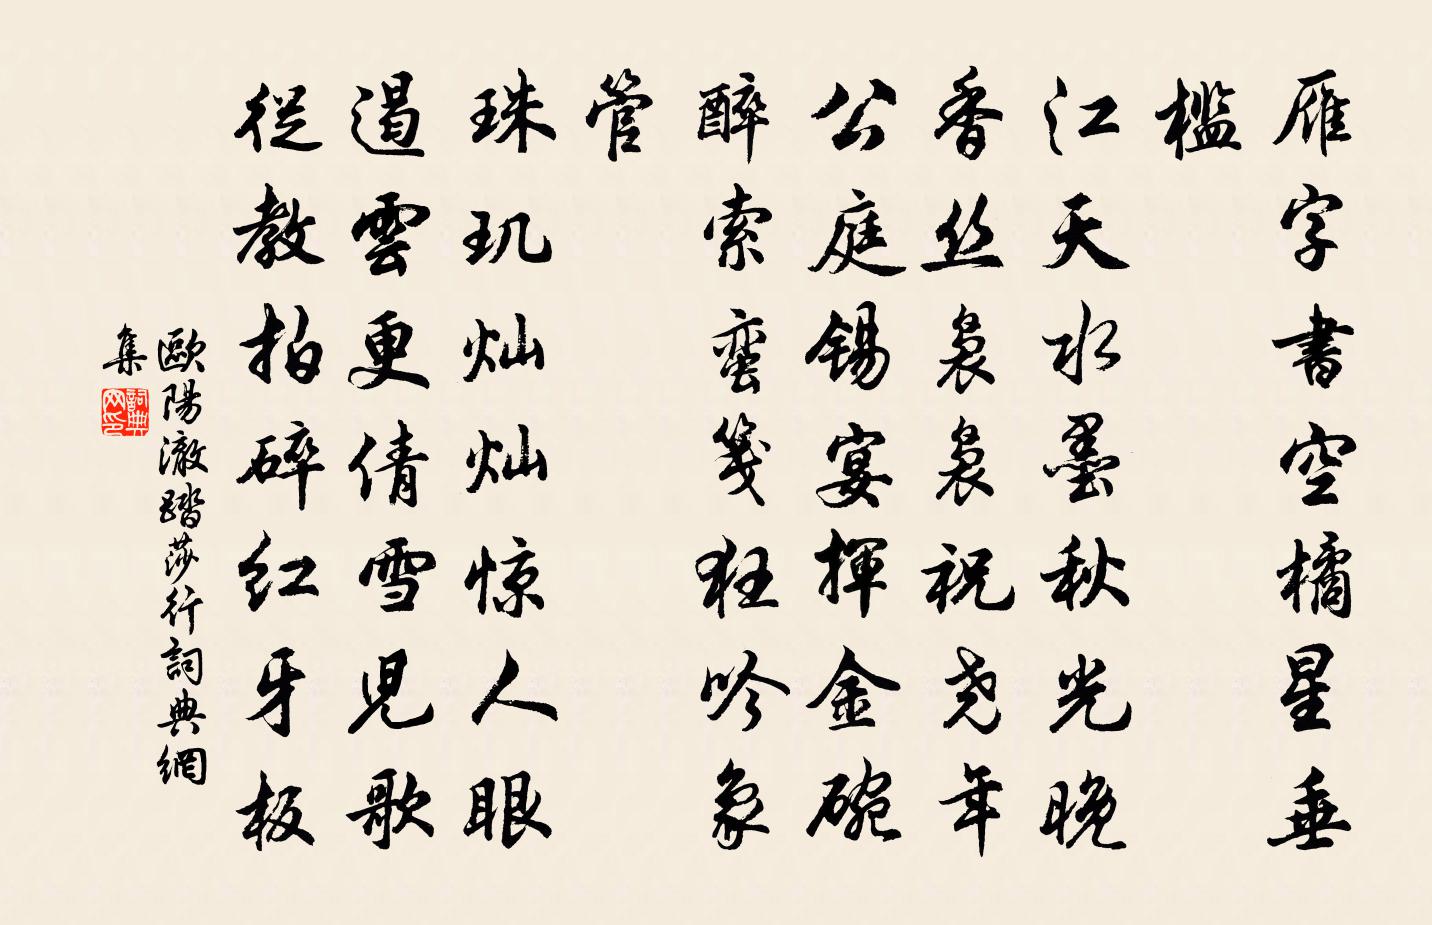 雁字書空橘星垂
檻
江天水墨秋光晚
香丝裊裊祝尧年
公庭锡宴揮金碗
醉索蛮箋狂吟象
管
珠玑灿灿惊人眼
遏雲更倩雪児歌
從教拍碎红牙板
歐陽澈踏莎行詞典網
集
詞典网印